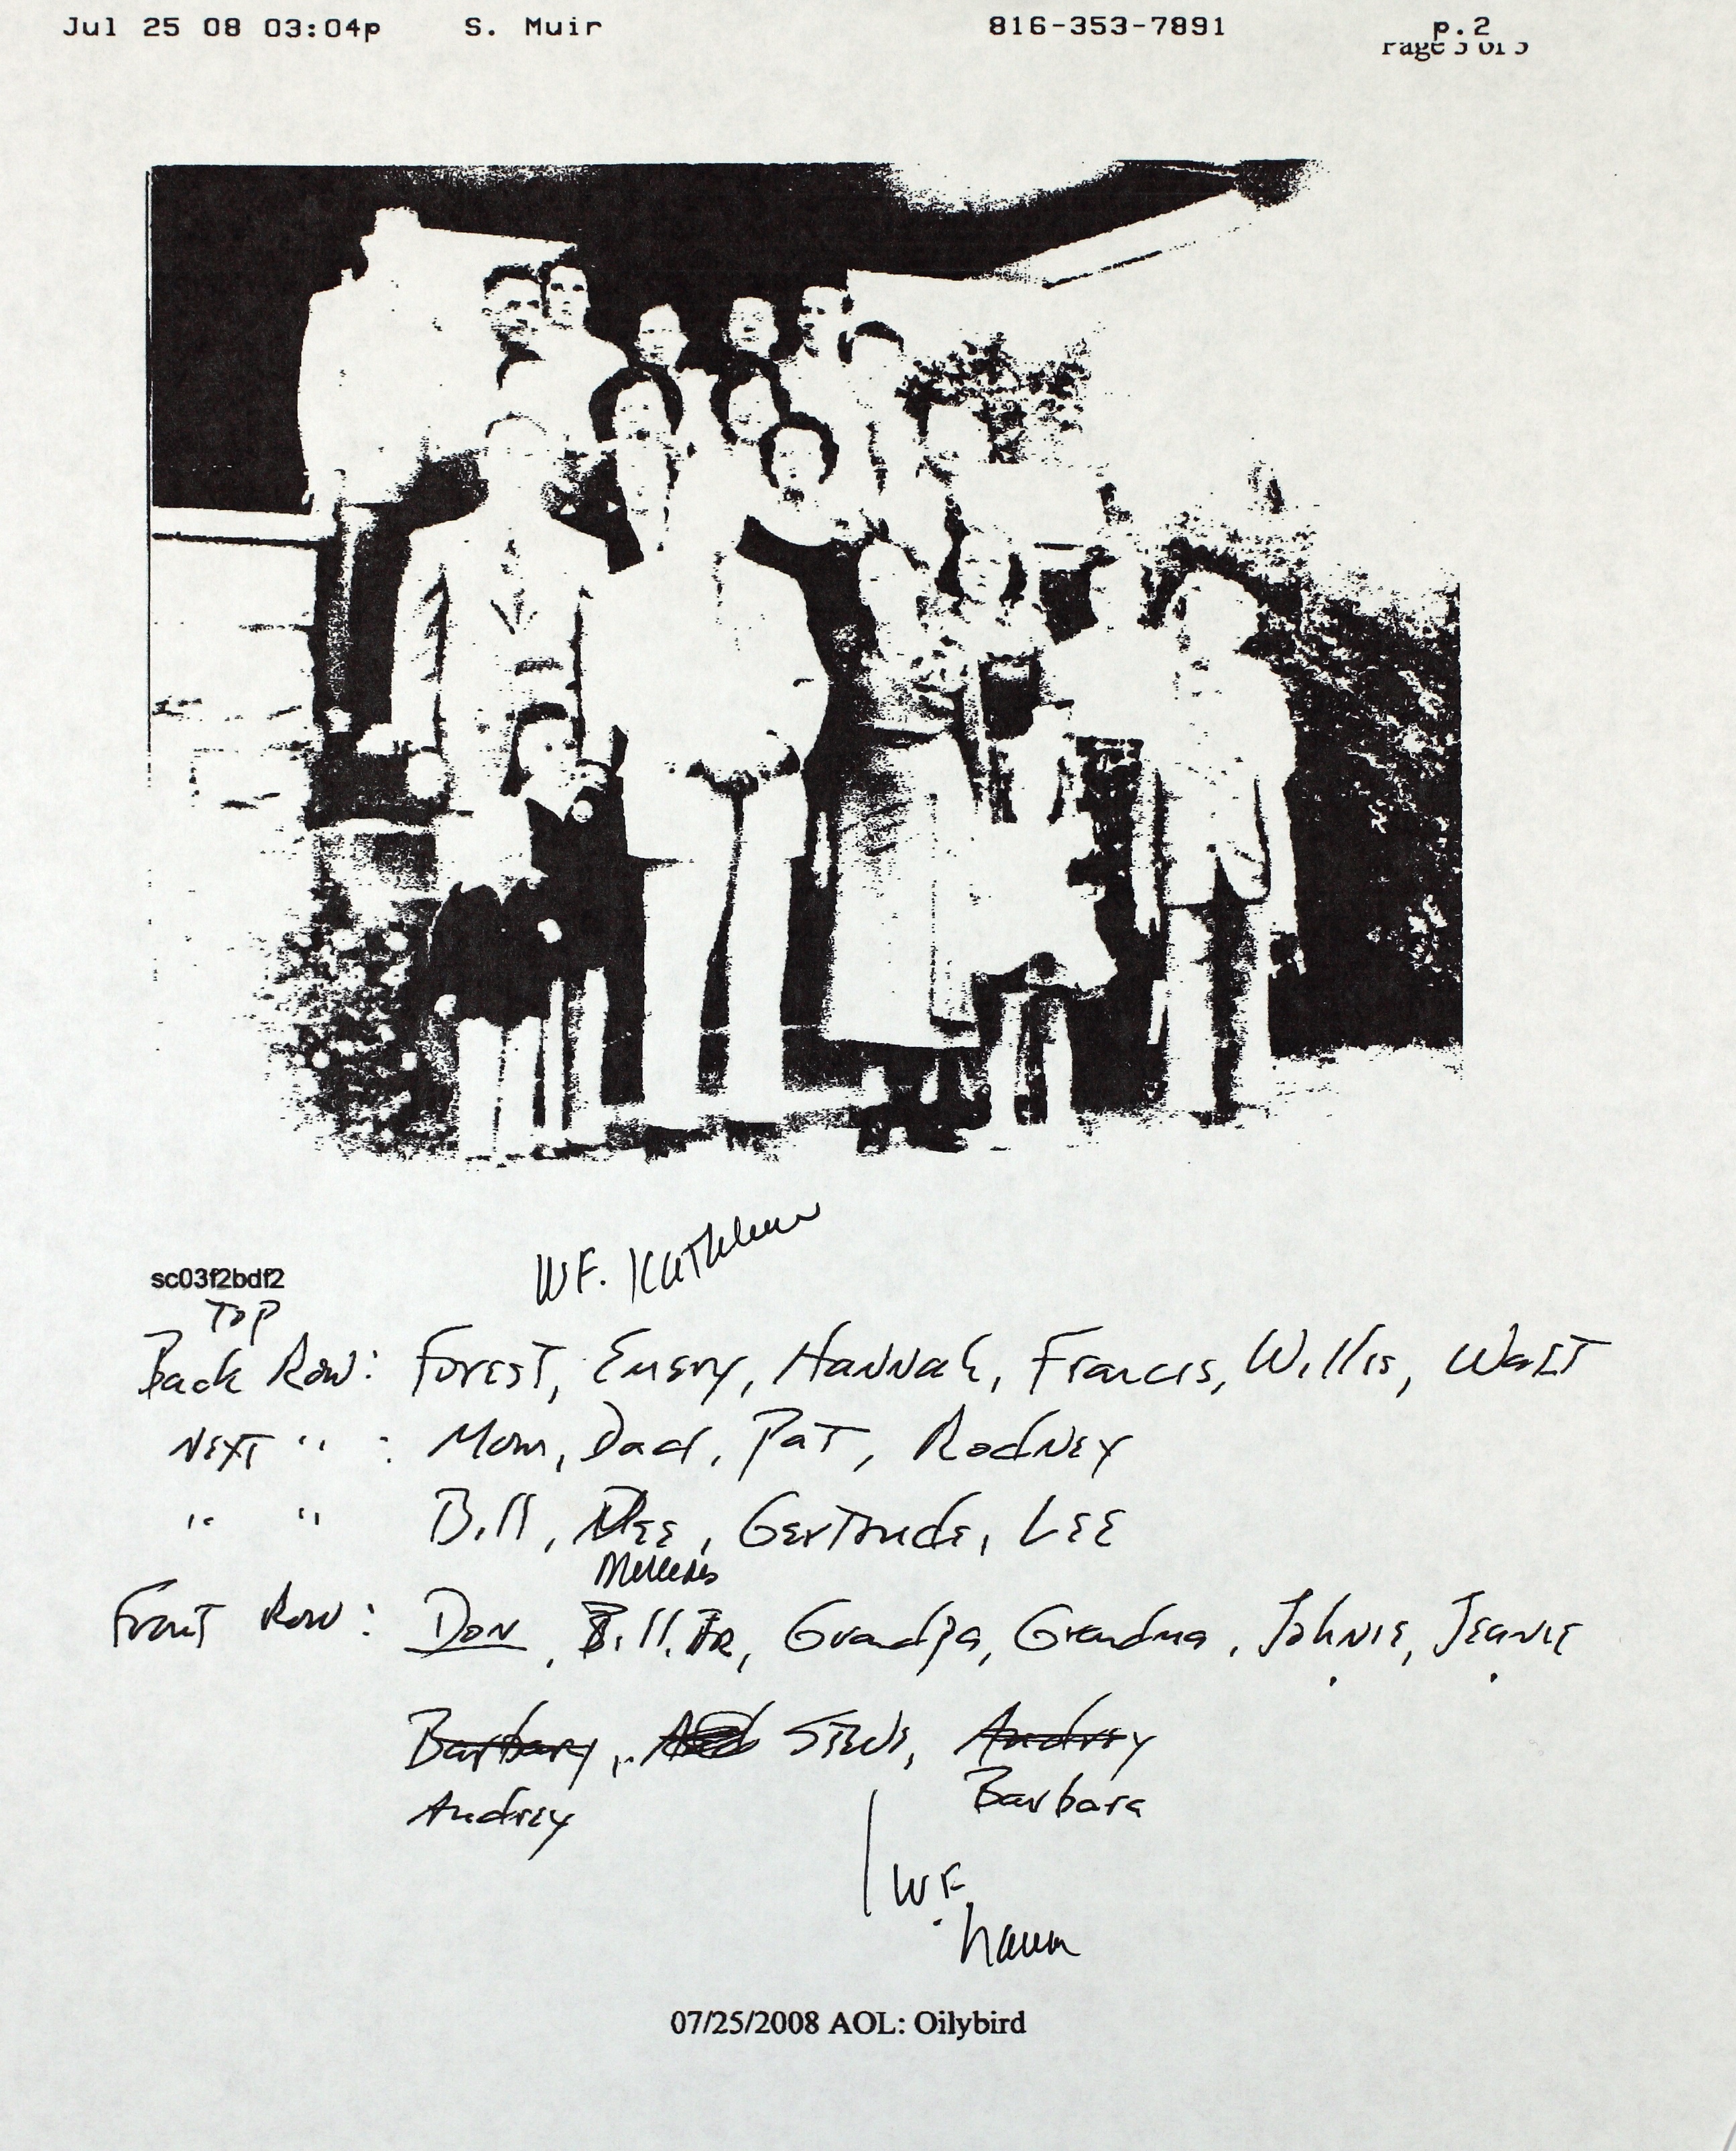 Jul 25 08 03:04p S. Muir 816-353-7891 p.2
Page 3 of 3
WF. Kathleen
sc03f2bdf2
Top
Back Row: Forest, Emery, Hannah, Francis, Willis, Walt
Next " : Mom, Dad, Pat, Rodney
" " Bill, Dee, Gertrude, Lee
Mercedes
Front Row: Don, Bill Jr, Grandpa, Grandma, Johnie, Jeanie
Barbara, Stevi, Audrey
Audrey Barbara
WF
07/25/2008 AOL: Oilybird